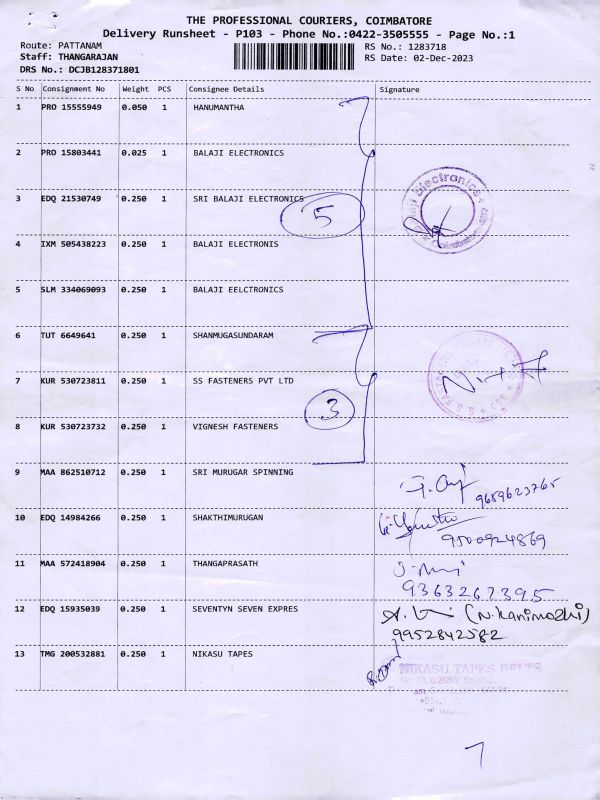 THE PROFESSIONAL COURIERS, COIMBATORE
Delivery Runsheet - P103 - Phone No.:0422-3505555 - Page No.:1
Route: PATTANAM
RS No.: 1283718
Staff: THANGARAJAN
RS Date: 02-Dec-2023
DRS No.: DCJB128371801
S No Consignment No Weight PCS Consignee Details Signature
1 PRO 15555949 0.050 1 HANUMANTHA
2 PRO 15803441 0.025 1 BALAJI ELECTRONICS
3 EDQ 21530749 0.250 1 SRI BALAJI ELECTRONICS
5
Balaji Electronics
4 IXM 505438223 0.250 1 BALAJI ELECTRONIS
5 SLM 334069093 0.250 1 BALAJI EELCTRONICS
6 TUT 6649641 0.250 1 SHANMUGASUNDARAM
7 KUR 530723811 0.250 1 SS FASTENERS PVT LTD
3
8 KUR 530723732 0.250 1 VIGNESH FASTENERS
9 MAA 862510712 0.250 1 SRI MURUGAR SPINNING
9659623765
10 EDQ 14984266 0.250 1 SHAKTHIMURUGAN
9500924869
11 MAA 572418904 0.250 1 THANGAPRASATH
9363267395
12 EDQ 15935039 0.250 1 SEVENTYN SEVEN EXPRES
(N.Kanimozhi)
9952842582
13 TMG 200532881 0.250 1 NIKASU TAPES
NIKASU TAPES
7